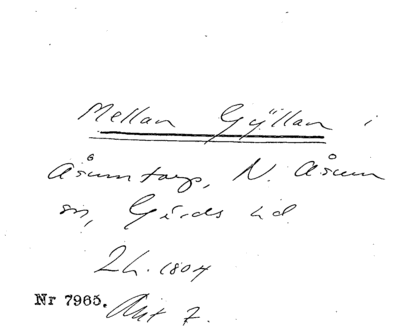 Mellan Gyllan i
Åsumtorp, N. Åsum
sn, Gärds hd
2h. 1804
Nr 7965. Akt 7.